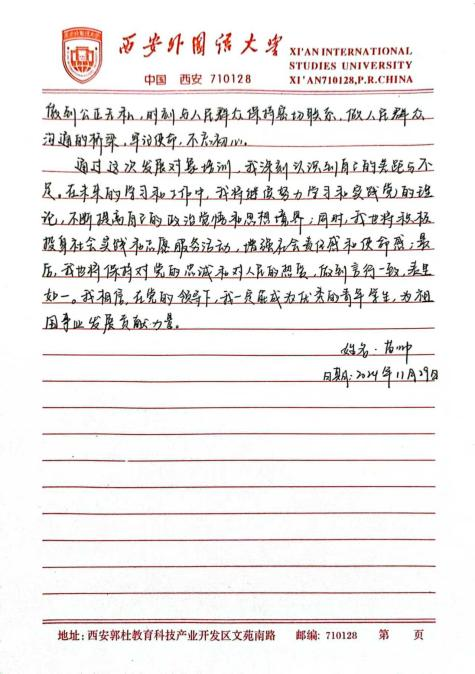 西安外国语大学
XI'AN INTERNATIONAL
STUDIES UNIVERSITY
XI'AN710128,P.R.CHINA
中国 西安 710128
做到公正无私,时刻与人民群众保持密切联系,做人民群众
沟通的桥梁,牢记使命,不忘初心。
通过这次发展对象培训,我深刻认识到自己的差距与不
足。在未来的学习和工作中,我将继续努力学习和实践党的理
论,不断提高自己的政治觉悟和思想境界;同时,我也将积极
投身社会实践和志愿服务活动,增强社会责任感和使命感;最
后,我也将保持对党的忠诚和对人民的热爱,做到言行一致、表里
如一。我相信,在党的领导下,我一定能成为优秀的青年学生,为祖
国事业发展贡献力量。
姓名:苗帅
日期:2024年11月29日
地址:西安郭杜教育科技产业开发区文苑南路 邮编:710128 第 页